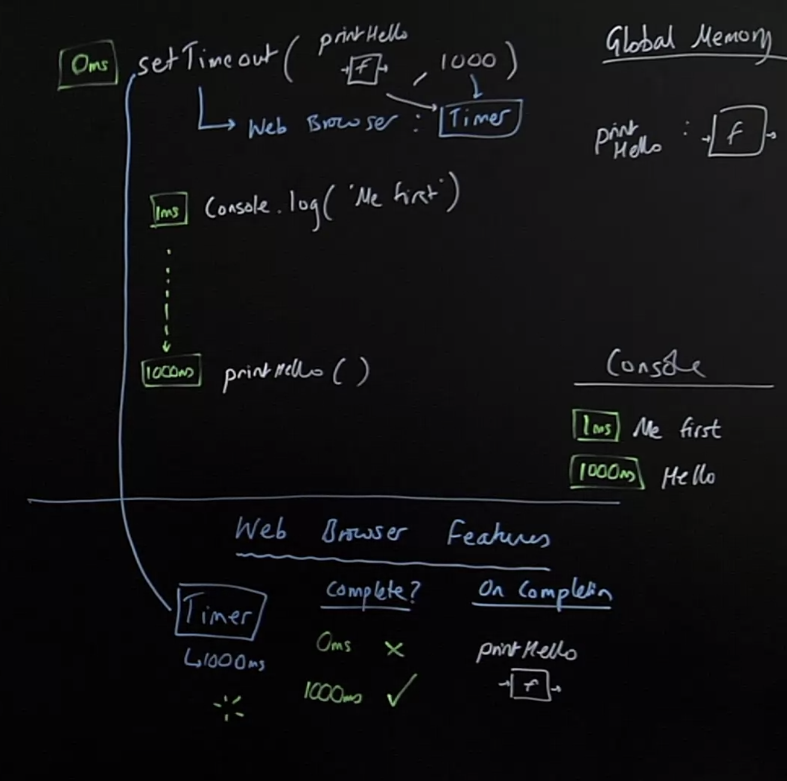 0ms setTimeout( printHello f , 1000 )
Web Browser : Timer
1ms Console.log('Me first')
1000ms printHello ( )
Global Memory
print Hello : f
Console
1ms Me first
1000ms Hello
Web Browser Features
Timer
1000ms
Complete?
0ms ✗
1000ms ✓
On Completin
printHello
f